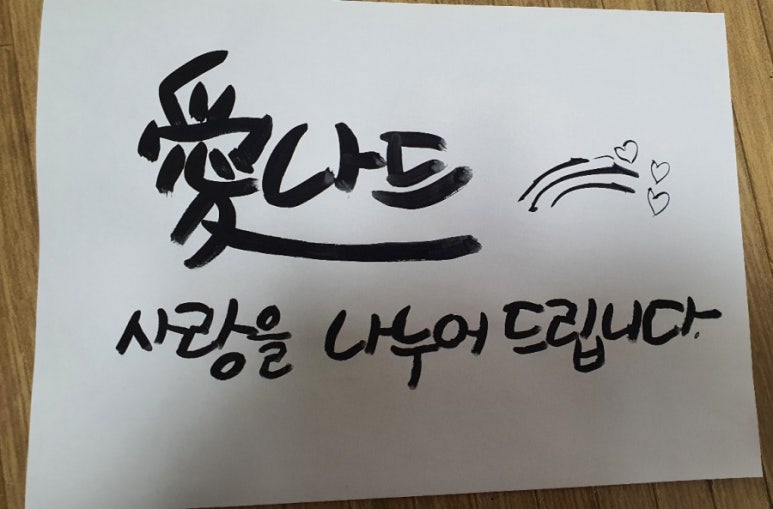 愛나드
사랑을 나누어 드립니다.